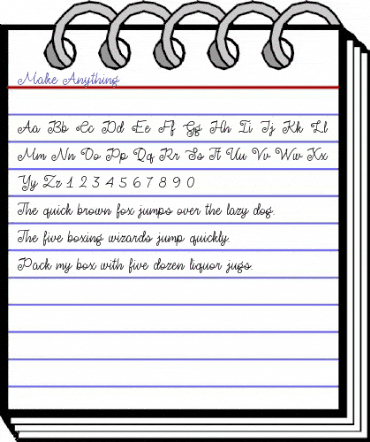 Make Anything
Aa Bb Cc Dd Ee Ff Gg Hh Ii Jj Kk Ll
Mm Nn Oo Pp Qq Rr Ss Tt Uu Vv Ww Xx
Yy Zz 1 2 3 4 5 6 7 8 9 0
The quick brown fox jumps over the lazy dog.
The five boxing wizards jump quickly.
Pack my box with five dozen liquor jugs.